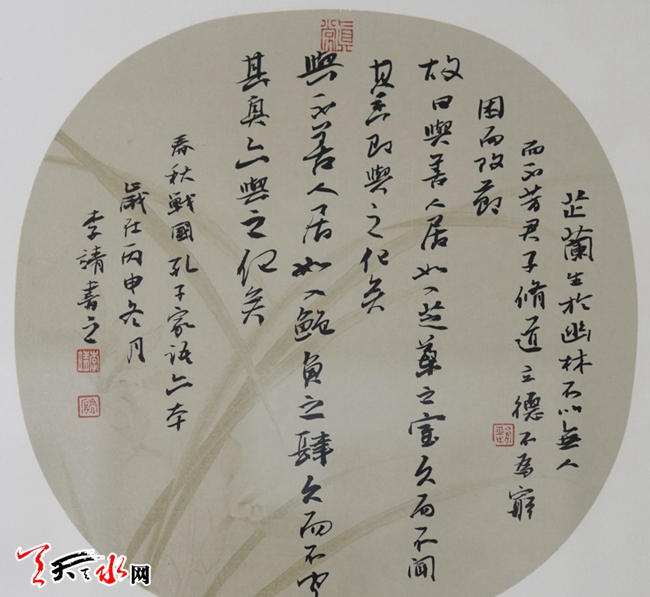 芷蘭生於幽林不以無人
而不芳君子脩道立德不為窮
困而改節
故曰與善人居如入芝蘭之室久而不聞
其香即與之化矣
與不善人居如入鮑魚之肆久而不聞
其臭亦與之化矣
春秋戰國孔子家語六本
歲在丙申冬月
李靖書之
天天天水网